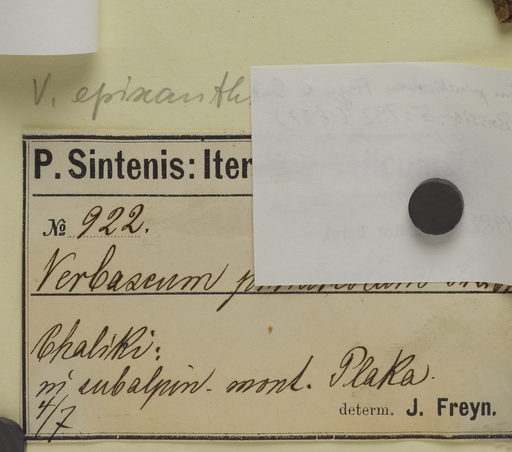 V. epixanth
P. Sintenis: Iter
№ 922.
Verbascum
Chaliki:
in subalpin. mont. Plaka.
4/7
determ. J. Freyn.